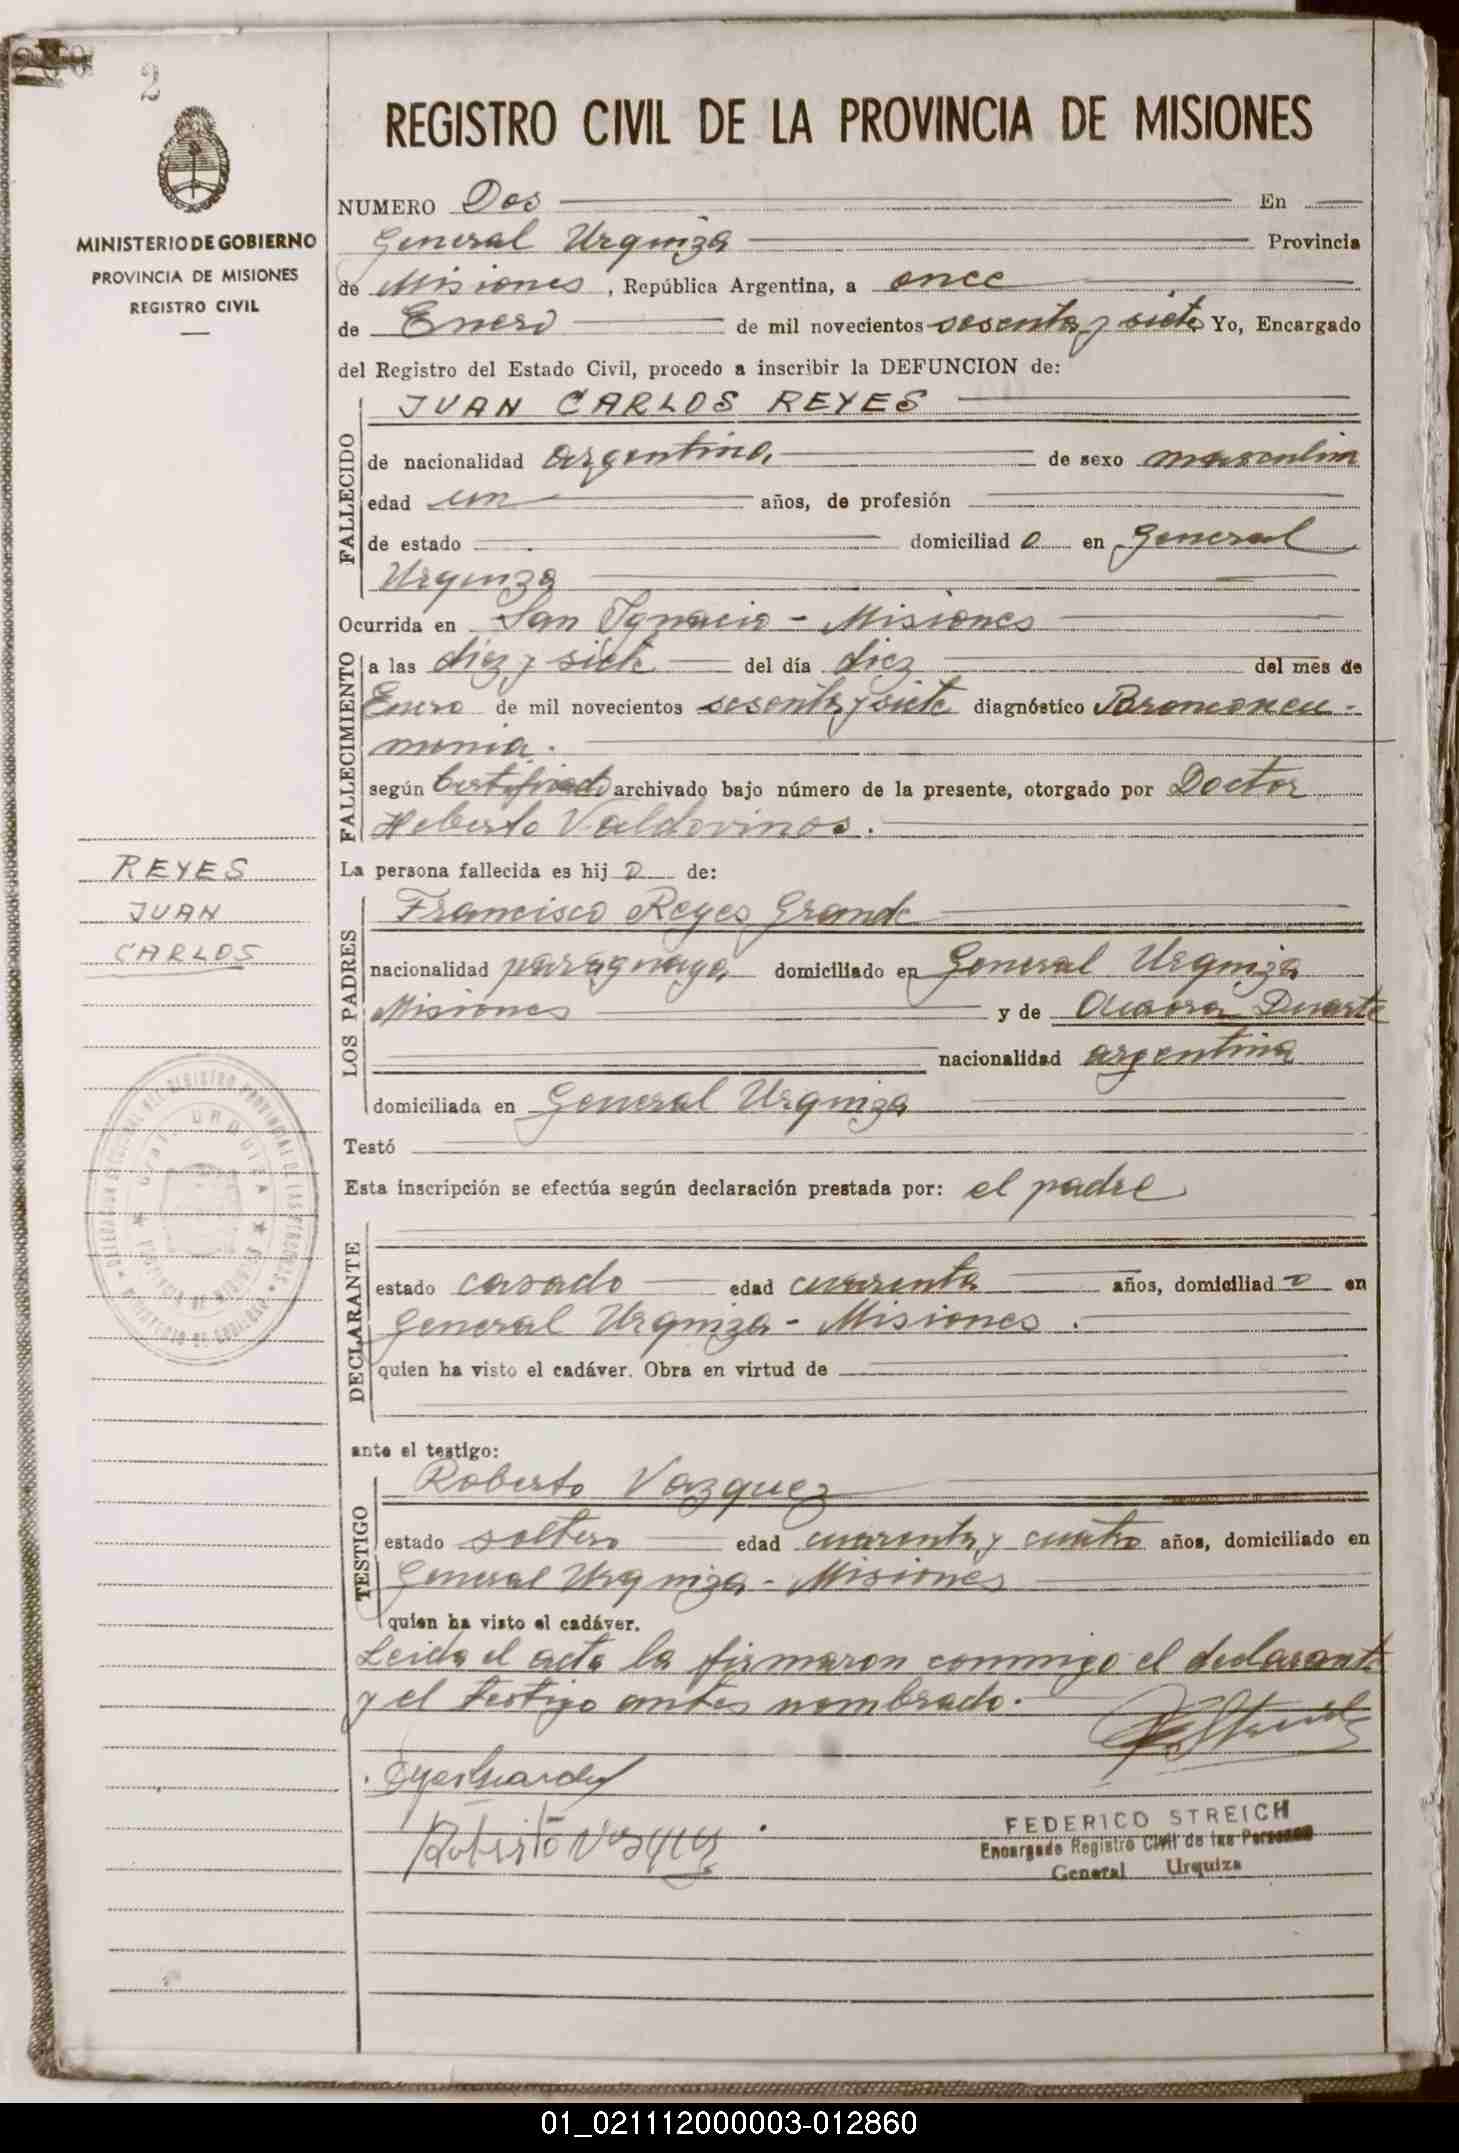 2
REGISTRO CIVIL DE LA PROVINCIA DE MISIONES
MINISTERIO DE GOBIERNO
PROVINCIA DE MISIONES
REGISTRO CIVIL
NUMERO Dos En
General Urquiza Provincia
de Misiones, República Argentina, a once
de Enero de mil novecientos sesenta y siete Yo, Encargado
del Registro del Estado Civil, procedo a inscribir la DEFUNCION de:
JUAN CARLOS REYES
FALLECIDO
de nacionalidad argentina de sexo masculin
edad un años, de profesión
de estado domiciliad o en General
Urquiza
Ocurrida en San Ignacio - Misiones
FALLECIMIENTO
a las diez y siete del día diez del mes de
Enero de mil novecientos sesenta y siete diagnóstico Bronconeu-
monia.
según Certificado archivado bajo número de la presente, otorgado por Doctor
Heberto Valdovinos.
REYES
JUAN
CARLOS
La persona fallecida es hij o de:
LOS PADRES
Francisco Reyes Grande
nacionalidad paraguaya domiciliado en General Urquiza
Misiones y de Duarte
nacionalidad argentina
domiciliada en General Urquiza
Testó
Esta inscripción se efectúa según declaración prestada por: el padre
DECLARANTE
estado casado edad cuarenta años, domiciliad o en
General Urquiza - Misiones.
quien ha visto el cadáver. Obra en virtud de
ante el testigo:
TESTIGO
Roberto Vazquez
estado soltero edad cuarenta y cuatro años, domiciliado en
General Urquiza - Misiones
quien ha visto el cadáver.
Leida el acta la firmaron conmigo el declarante
y el testigo antes nombrado.
Roberto Vazquez
FEDERICO STREICH
Encargado Registro Civil de las Personas
General Urquiza
01_021112000003-012860